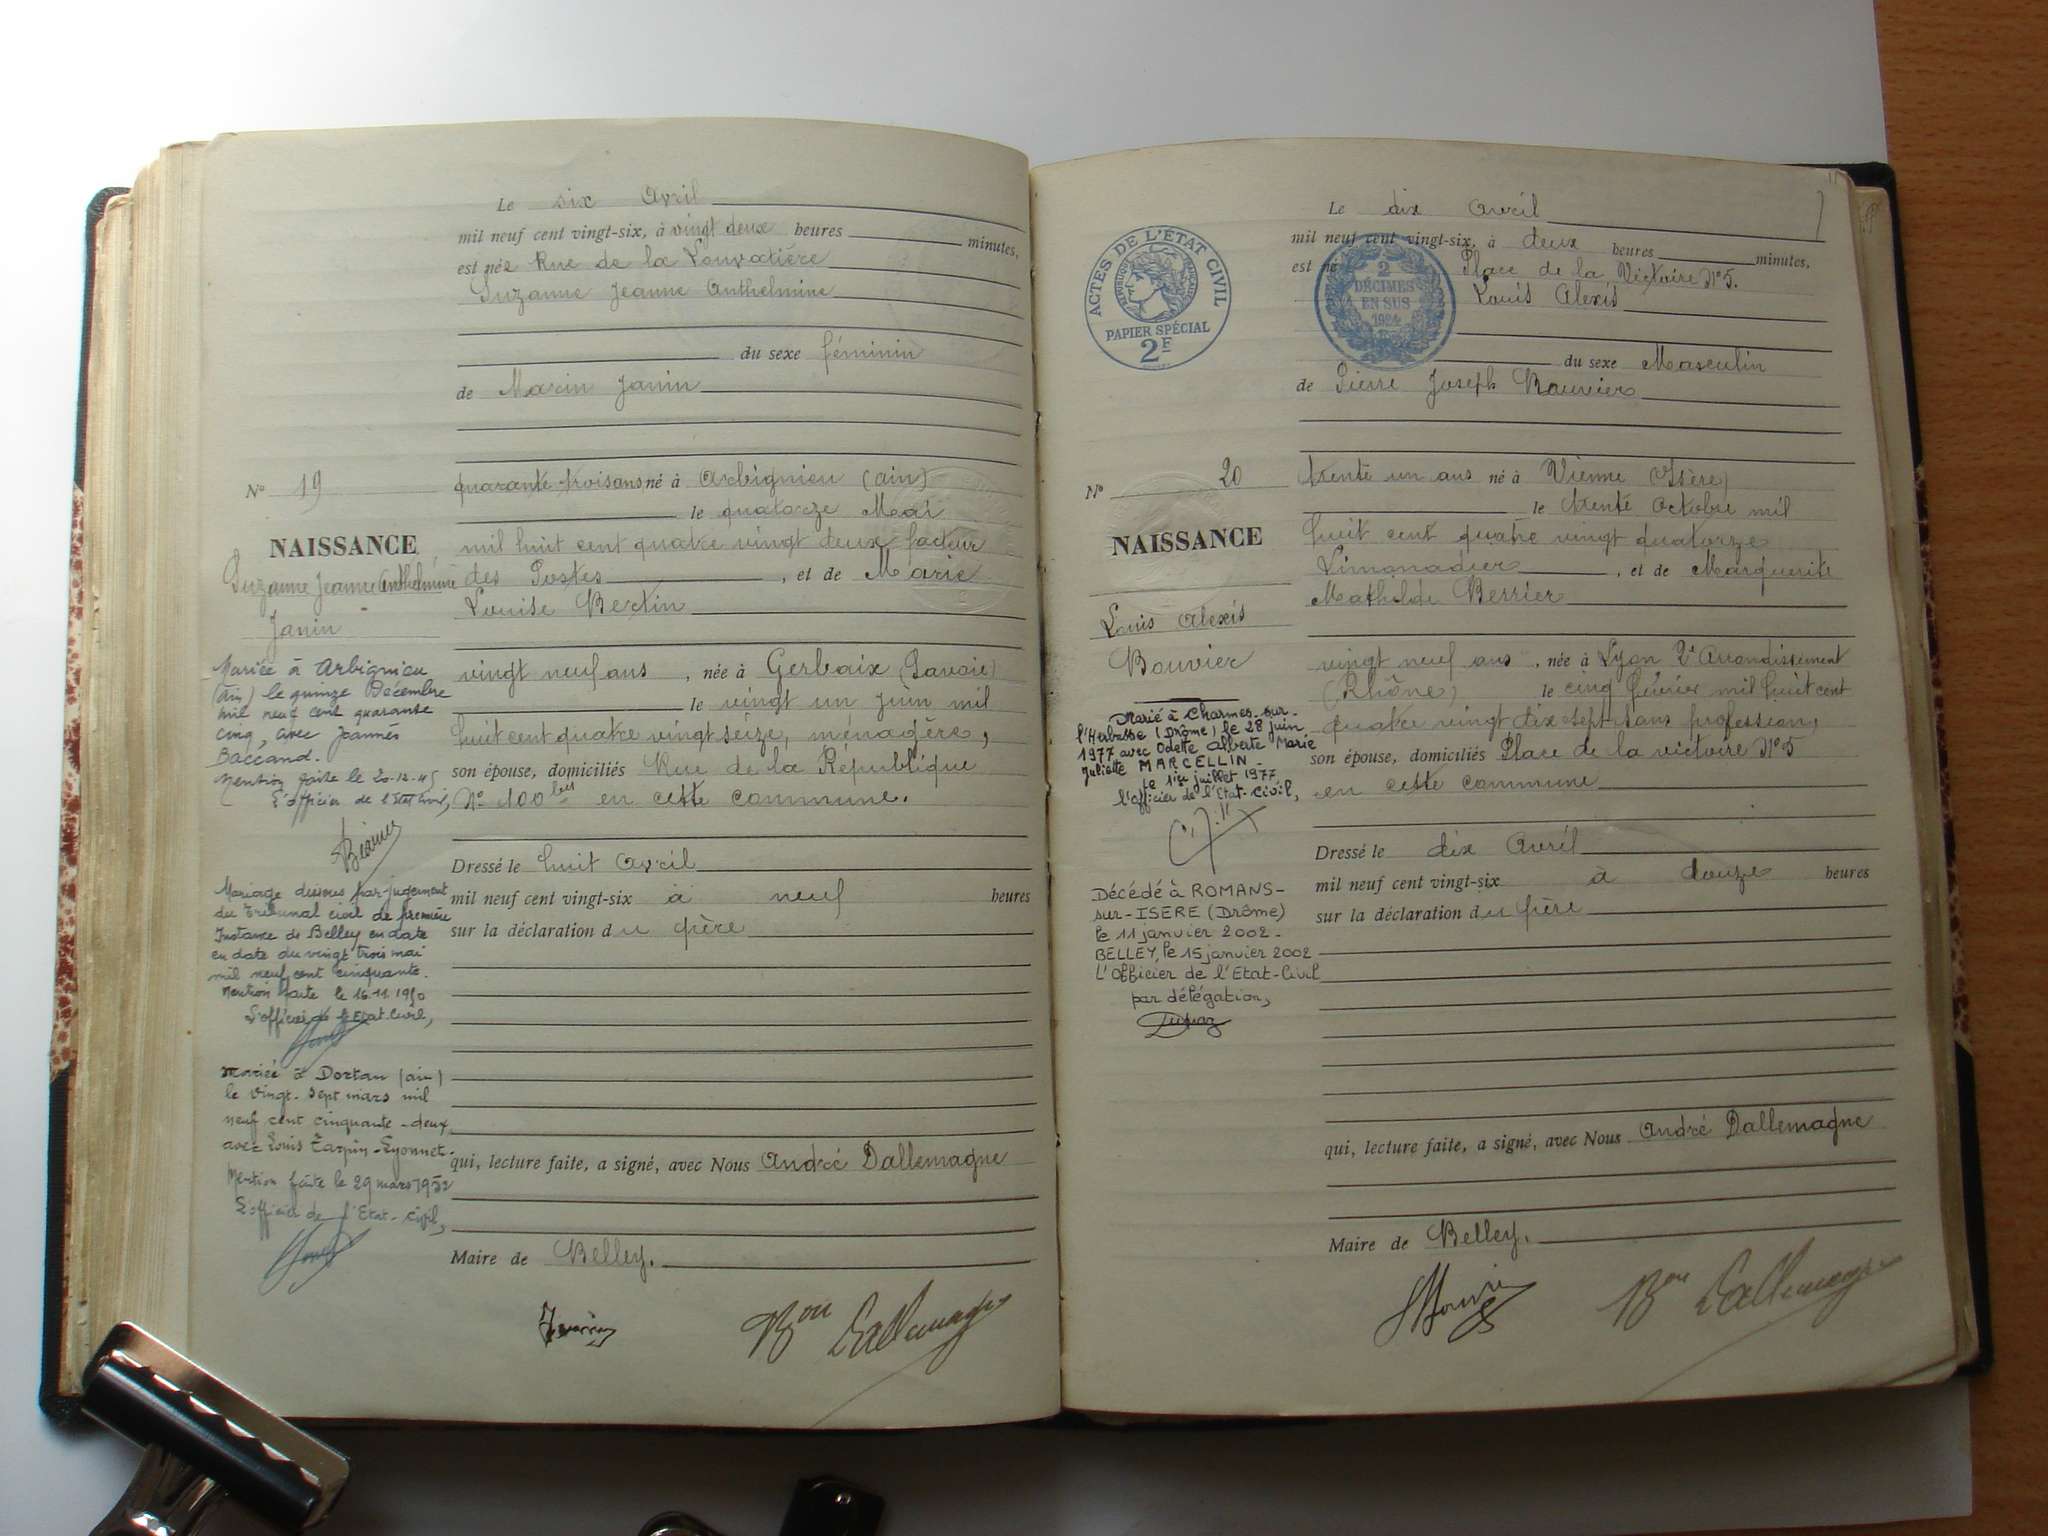 Le six Avril
mil neuf cent vingt-six, à vingt deux heures minutes,
est née Rue de la Louvatière
Suzanne Jeanne Anthelmine
du sexe féminin
de Marin Janin
N° 19
quarante-trois ans né à Arbignieu (Ain)
le quatorze Mai
NAISSANCE
mil huit cent quatre vingt deux facteur
Suzanne Jeanne Anthelmine
des Postes, et de Marie
Louise Bertin
Janin
vingt neuf ans, née à Gerbaix (Savoie)
le vingt un juin mil
huit cent quatre vingt seize, ménagère,
son épouse, domiciliés Rue de la République
N° 100 bis en cette commune.
Mariée à Arbignieu
(Ain) le quinze Décembre
mil neuf cent quarante
cinq, avec Joannès
Baccand.
Mention faite le 20-12-45
L'officier de l'Etat Civil,
Dressé le huit Avril
mil neuf cent vingt-six à neuf heures
sur la déclaration du père
Mariage dissous par jugement
du Tribunal civil de première
Instance de Belley en date
en date du vingt trois mai
mil neuf cent cinquante.
Mention faite le 16-11 1950
L'officier de l'Etat-Civil,
Mariée à Dortan (Ain)
le vingt-sept mars mil
neuf cent cinquante-deux
avec Louis Tarpin-Lyonnet.
Mention faite le 29 mars 1952
L'officier de l'Etat-civil,
qui, lecture faite, a signé, avec Nous André Dallemagne
Maire de Belley.
Bon Dallemagne
Le dix Avril
mil neuf cent vingt-six, à deux heures minutes,
est né Place de la Victoire N°5.
Louis Alexis
ACTES DE L'ÉTAT CIVIL
RÉPUBLIQUE FRANÇAISE
PAPIER SPÉCIAL
2F
2
DÉCIMES
EN SUS
1924
du sexe Masculin
de Pierre Joseph Bouvier
N° 20
trente un ans né à Vienne (Isère)
le trente Octobre mil
NAISSANCE
huit cent quatre vingt quatorze
Limonadier, et de Marguerite
Mathilde Berrier
Louis Alexis
Bouvier
vingt neuf ans, née à Lyon 2e Arrondissement
(Rhône) le cinq février mil huit cent
quatre vingt dix sept sans profession,
son épouse, domiciliés Place de la victoire N°5
en cette commune
Marié à Charmes-sur-
l'Herbasse (Drôme) le 28 juin
1977 avec Odette Alberte Marie
Juliette MARCELLIN-
Le 1er juillet 1977
l'officier de l'Etat-Civil,
Dressé le dix Avril
mil neuf cent vingt-six à douze heures
sur la déclaration du père
Décédé à ROMANS-
sur-ISERE (Drôme)
le 11 janvier 2002-
BELLEY, le 15 janvier 2002
L'Officier de l'Etat-Civil
par délégation,
qui, lecture faite, a signé, avec Nous André Dallemagne
Maire de Belley.
Bon Dallemagne